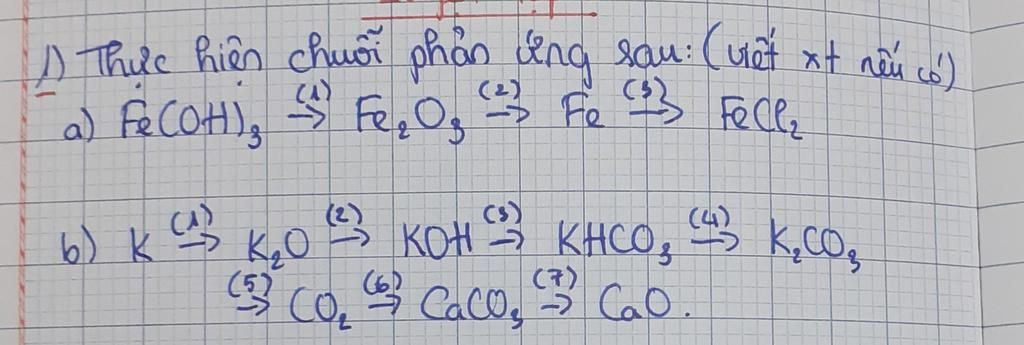 1) Thực hiện chuỗi phản ứng sau: (viết xt nếu có)
a) Fe(OH)₃ (1)→ Fe₂O₃ (2)→ Fe (3)→ FeCl₂
b) K (1)→ K₂O (2)→ KOH (3)→ KHCO₃ (4)→ K₂CO₃
(5)→ CO₂ (6)→ CaCO₃ (7)→ CaO.